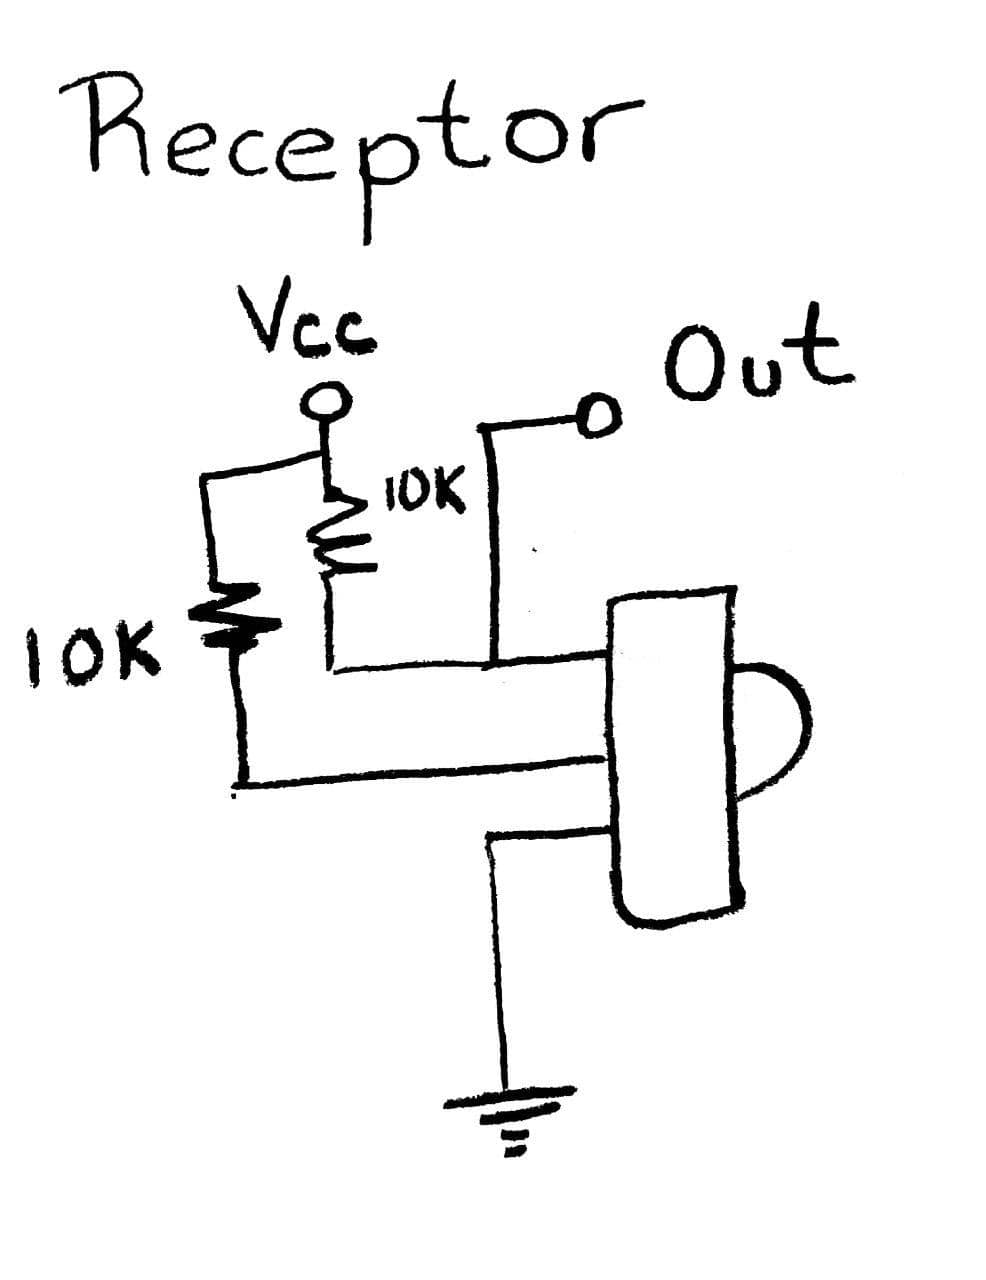 Receptor
Vcc
Out
10K
10K